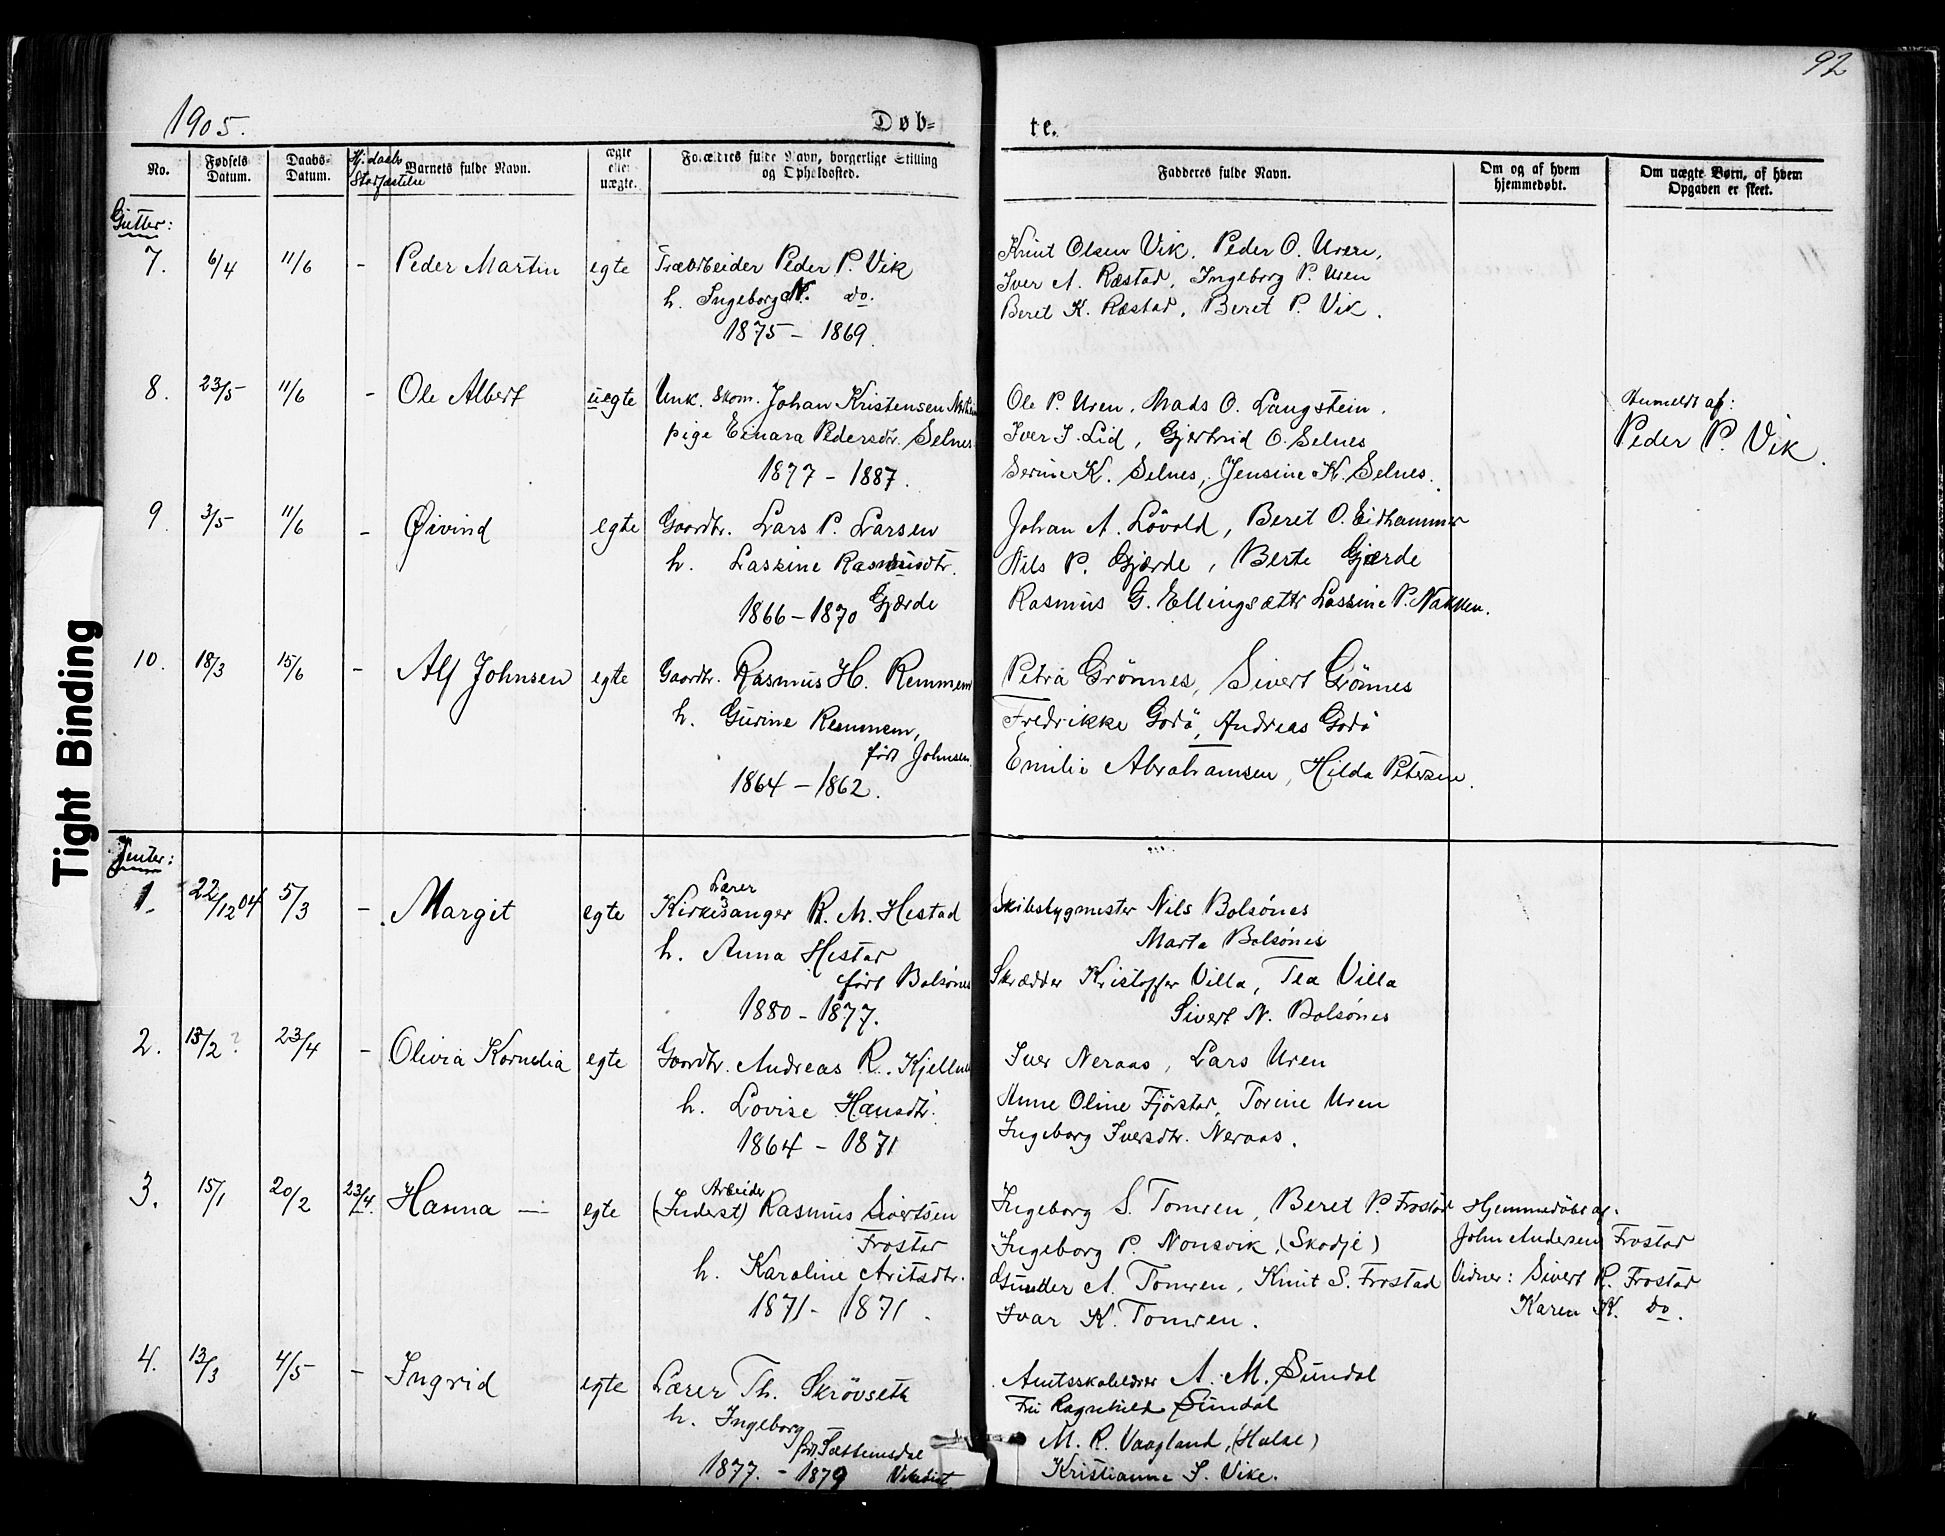 92
1905.
Døb-
te.
No.
Fødsels Datum.
Daabs- Datum.
Hj. daabs Stadfæstelse
Barnets fulde Navn.
ægte eller uægte.
Forældres fulde Navn, borgerlige Stilling og Opholdssted.
Fadderes fulde Navn.
Om og af hvem hjemmedøbt.
Om uægte Børn, af hvem Opgaven er skeet.
Gutter:
7. 6/4 11/6 - Peder Martin egte Træarbeider Peder P. Vik
h. Ingeborg N. do.
1875 - 1869.
Knut Olsen Vik, Peder O. Uren,
Iver A. Ræstad, Ingeborg P. Uren
Beret K. Ræstad, Beret P. Vik.
8. 23/5 11/6 - Ole Albert uegte Unk. Skom. Johan Kristensen
pige Einara Pedersdr. Selnes
1877 - 1887.
Ole P. Uren, Mads O. Langstein,
Iver I. Lid, Gjertrud O. Selnes
Serine K. Selnes, Jensine K. Selnes.
Anmeldt af:
Peder P. Vik.
9. 3/5 11/6 - Øivind egte Gaardbr. Lars P. Larsen
h. Lassine Rasmusdtr.
Gjærde
1866 - 1870
Johan A. Lövold, Beret O. Eidhammer
Nils P. Gjærde, Berte Gjærde
Rasmus G. Ellingsæter Lassine P. Nakken.
10. 18/3 15/6 - Alf Johnsen egte Gaardbr. Rasmus H. Remmem
h. Gurine Remmem,
født Johnsen.
1864 - 1862.
Petra Grönnes, Sivert Grönnes
Fredrikke Godö, Andreas Godö
Emilie Abrahamsen, Hilda Petersen.
Jenter:
1. 22/12 04 5/3 - Margit egte Lærer
Kirkesanger R. M. Hestad
h. Anna Hestad
født Bolsönes
1880 - 1877.
Skibsbygmester Nils Bolsönes
Marta Bolsönes
Skrædder Kristoffer Villa, Tea Villa
Sivert N. Bolsönes
2. 13/2 ? 23/4 - Olivia Kornelia egte Gaardbr. Andreas R. Kjellnes
h. Lovise Hansdtr.
1864 - 1871
Iver Neraas, Lars Uren
Anne Oline Fjörstad, Torine Uren
Ingeborg Iversdtr. Neraas.
3. 15/1 20/2 23/4. Hanna - egte Arbeider
(Inderst) Rasmus Sivertsen
Frostad
h. Karoline Aritsdtr.
1871 - 1871.
Ingeborg S. Tomren, Beret P. Frostad
Ingeborg P. Nonsvik, (Skodje)
Gunder A. Tomren, Knut S. Frostad
Ivar K. Tomren.
Hjemmedöbt af.
John Andersen Frostad
Vidner: Sivert R. Frostad
Karen K. do.
4. 13/3 4/5 - Ingrid egte Lærer Th. Skrövseth
h. Ingeborg
født Sæthemsdal
1877. - 1879
Amtsskolelærer A. M. Sundal
Fru Ragnhild Sundal
M. R. Vaagland, (Halse)
Kristianne I. Vike.
Tight Binding